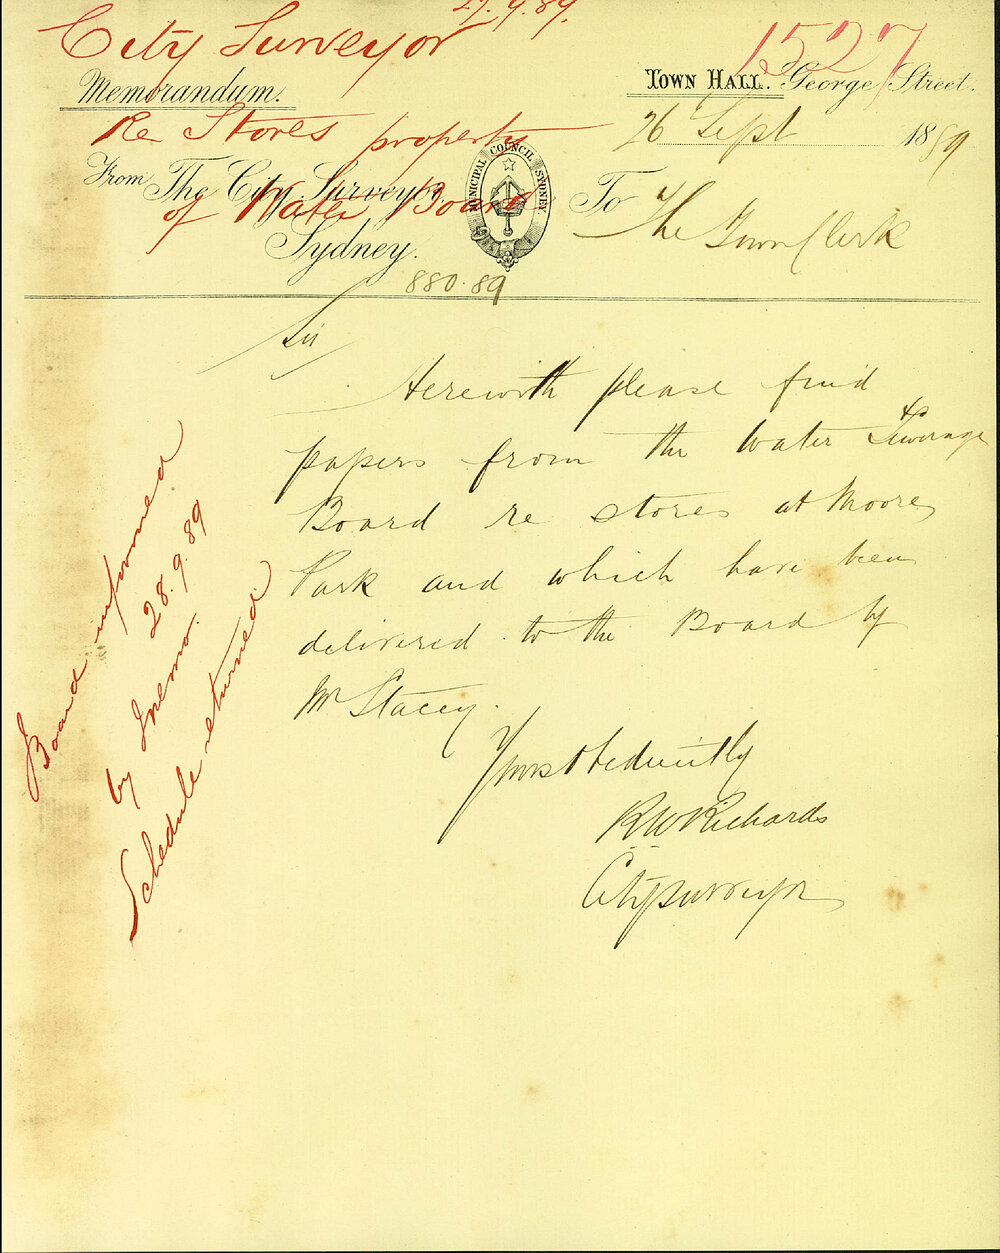 27.9.89.
City Surveyor
1527
Memorandum.
TOWN HALL. George Street.
Re Stores property
26 Sept 1889
MUNICIPAL COUNCIL SYDNEY
From The City Surveyor,
of Water Board
To The Town Clerk
Sydney.
880.89
Sir
Herewith please find
papers from the Water & Sewerage
Board re stores at Moore
Park and which have been
delivered to the Board by
Mr Stacey.
Yours Obediently
R W Richards
City Surveyor
Board informed
by memo. 28.9.89
Schedule returned.